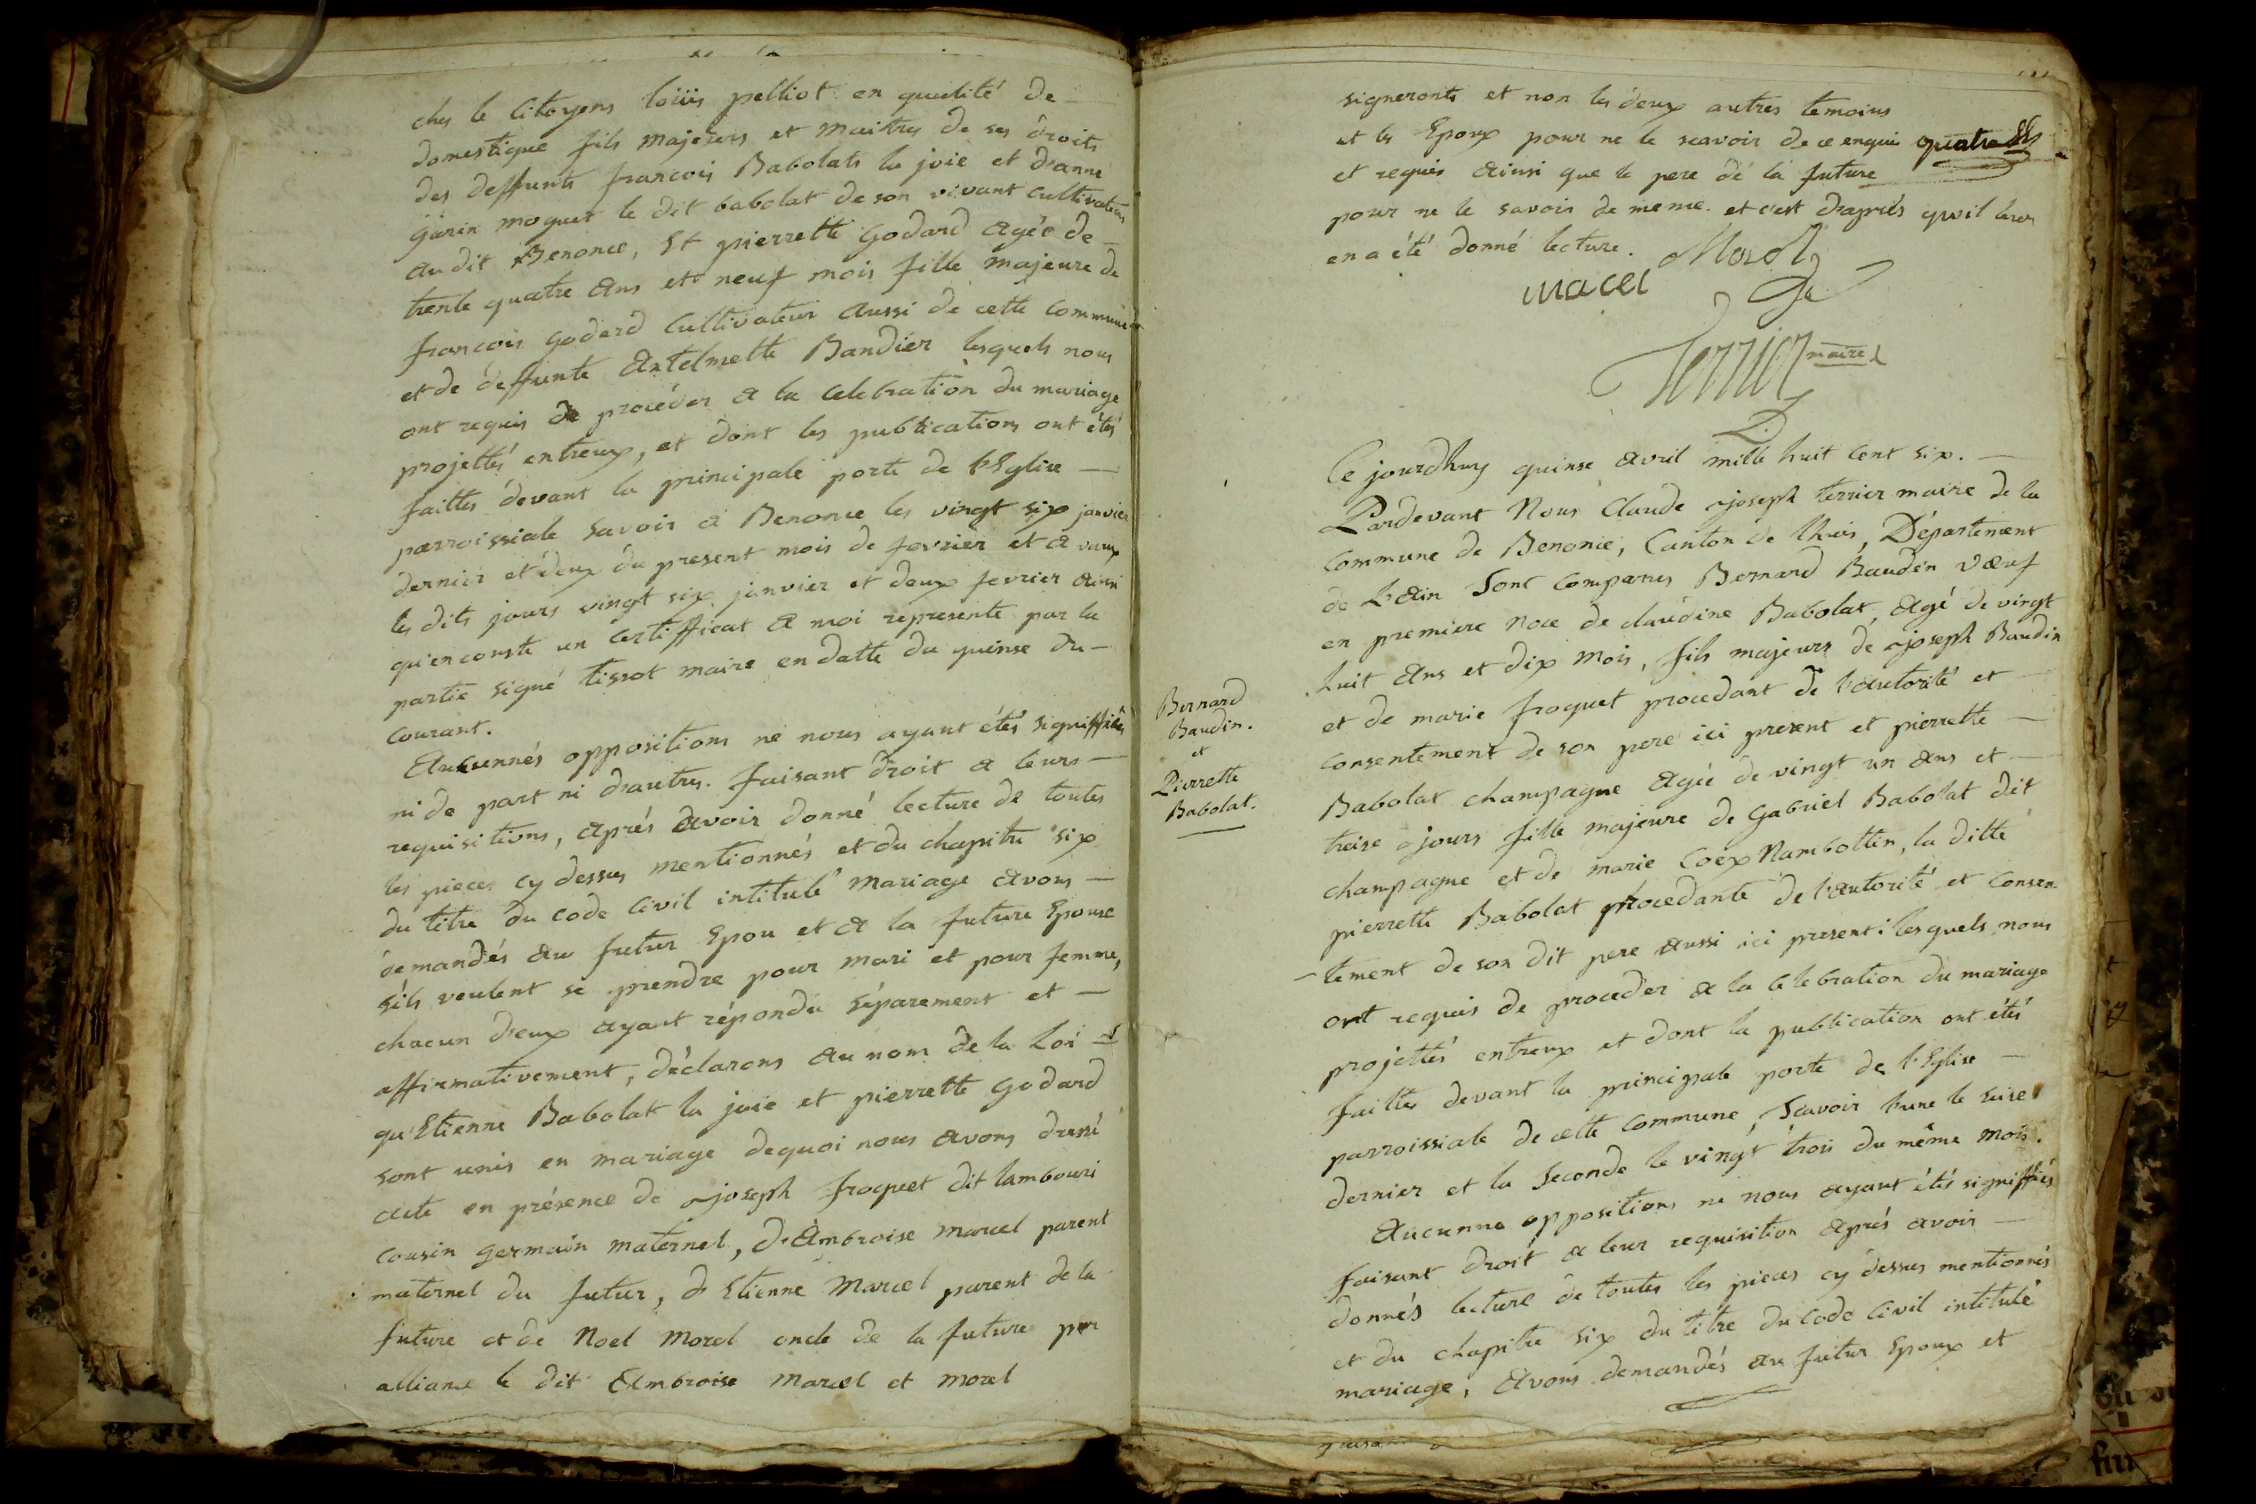 ches le Citoyens loüis pelliot en qualité de
domestique fils majeurs et maitres de ses droits
des deffunts francois Babolats la joie et d'anne
Garin moquet le dit babolat de son vivant cultivateur
audit Benonce, et pierrette Godard agée de
trente quatre ans et neuf mois fille majeure de
francois Godard Cultivateur aussi de cette commune
et de deffunte Antelmette Bandier lesquels nous
ont requis de procéder a la celebration du mariage
projettés entreux, et dont les publications ont étés
faittes devant la principale porte de l'Eglise
parroissiale savoir a Benonce les vingt six janvier
dernier et deux du present mois de fevrier et a vaux
les dits jours vingt six janvier et deux fevrier ainsi
qu'en conste un certifficat a moi representé par la
partie signé tissot maire en datte du quinse du
courant.
Aucunnés oppositions ne nous ayant étés signiffiées
ni de part ni d'autres. faisant droit a leurs
requisitions, aprés avoir donné lecture de toutes
les pieces cy dessus mentionnés et du chapitre six
du titre du code civil intitulé mariage avons
demandés au futur Epou et a la future Epouse
s'ils veulent se prendre pour mari et pour femme,
chacun d'eux ayant répondu séparement et
affirmativement, déclarons au nom de la Loi
qu'Etienne Babolat la joie et pierrette Godard
sont unis en mariage dequoi nous avons dressé
acte en présence de joseph froquet dit lambouri
cousin germain maternel, d'Ambroise marcel parent
maternel du futur, d'Etienne Marcel parent de la
future et de Noel Morel oncle de la future par
alliance le dit Ambroise marcel et morel
signeronts et non les deux autres temoins
et les Epoux pour ne le scavoir de ce enquis
et requis ainsi que le pere de la future
pour ne le savoir de meme. et c'est d'aprés qu'il leur
en a été donné lecture.
Morel
macel
Terrier maire
Ce jourdhuy quinse avril mille huit cent six.
Pardevant Nous Claude joseph terrier maire de la
Commune de Benonce, Canton de Lhuis, Département
de L'Ain Sont comparus Bernard Baudin vœuf
en premiere noce de claudine Babolat, agé de vingt
huit ans et dix mois, fils majeurs de joseph Baudin
et de marie froquet procedant de l'autorité et
consentement de son pere ici present et pierrette
Bernard
Baudin.
et
Pierrette
Babolat.
Babolat champagne agée de vingt un ans et
treise jours fille majeure de Gabriel Babolat dit
champagne et de marie Coex Nambottin, la ditte
pierrette Babolat procedante de l'autorité et consen
tement de son dit pere aussi ici present: lesquels nous
ont requis de proceder a la celebration du mariage
projettés entreux et dont la publication ont étés
faittes devant la principale porte de l'Eglise
parroissiale de cette commune, Scavoir l'une le seise
dernier et la Seconde le vingt trois du même mois.
Aucunne oppositions ne nous ayant étés signiffiés
faisant droit a leur requisition aprés avoir
donnés lecture de toutes les pieces cy dessus mentionnés
et du chapitre six du titre du Code civil intitulé
mariage, Avons demandés au futur Epoux et